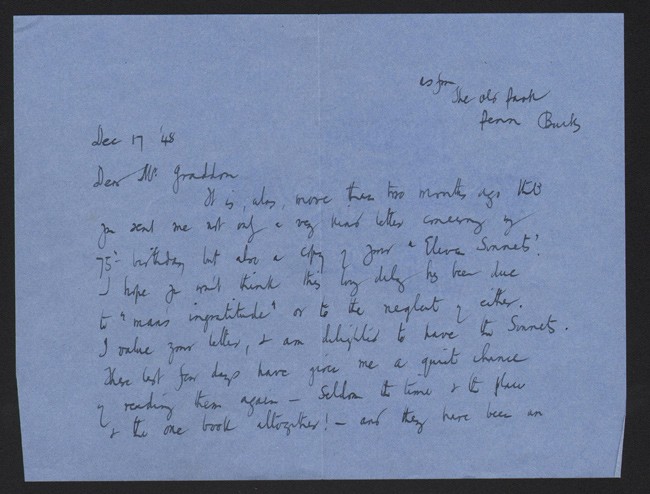 as from
The Old Park
Penn Bucks
Dec 17 '48
Dear Mr. Graddon
It is, alas, more than two months ago that
you sent me not only a very kind letter concerning my
75th birthday but also a copy of your "Eleven Sonnets".
I hope you won't think this long delay has been due
to "man's ingratitude" or to the neglect of either.
I value your letter, & am delighted to have the Sonnets.
These last few days have given me a quiet chance
of reading them again — Seldom the time & the place
& the one book altogether! — and they have been an